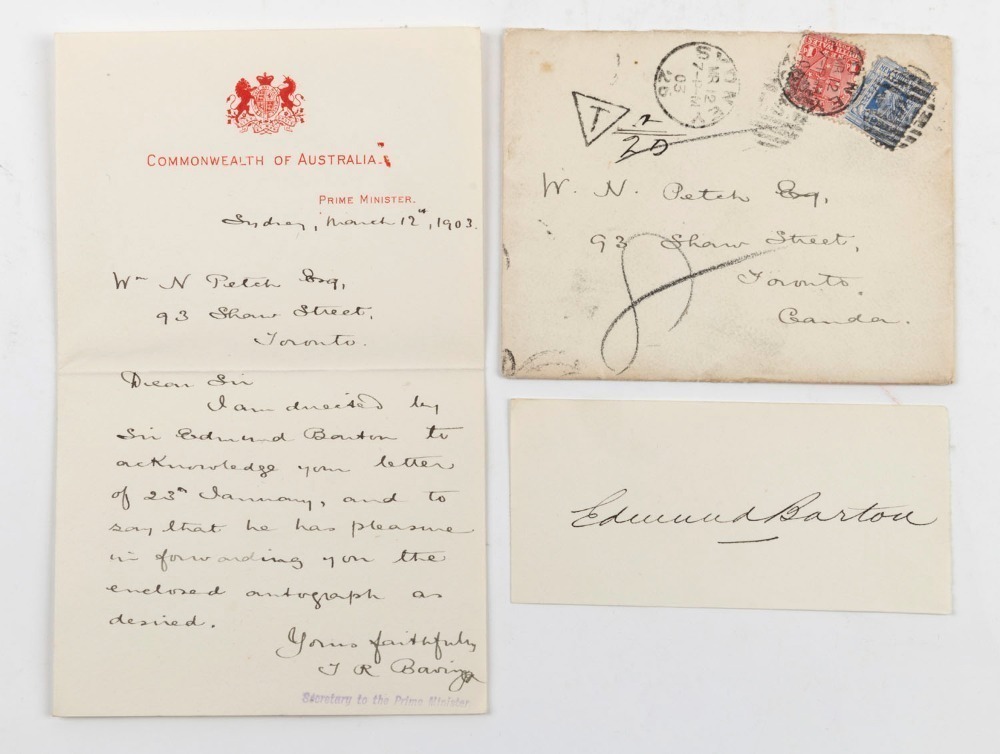 COMMONWEALTH OF AUSTRALIA.
PRIME MINISTER.
Sydney, March 12th, 1903.
Wm N Petch Esq,
93 Shaw Street,
Toronto.
Dear Sir
I am directed by
Sir Edmund Barton to
acknowledge your letter
of 23rd January, and to
say that he has pleasure
in forwarding you the
enclosed autograph as
desired.
Yours faithfully
T R Bavin
Secretary to the Prime Minister.
SYDNEY
MR 12
03
26
T
20
W. N. Petch Esq,
93 Shaw Street,
Toronto
Canda.
8
Edmund Barton